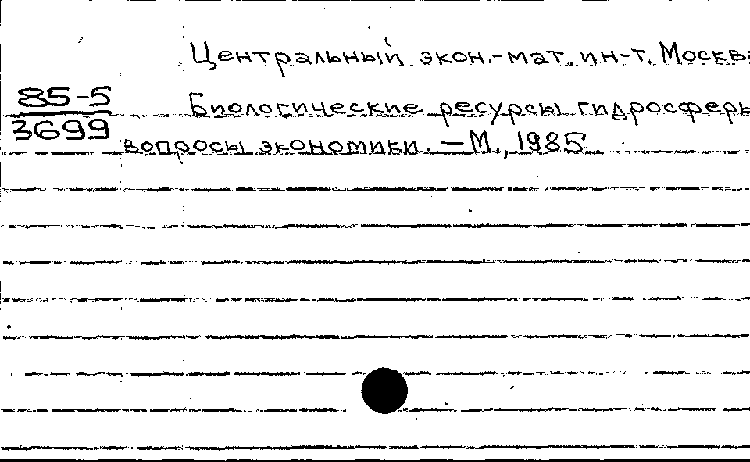 Центральный экон.-мат. ин-т. Москва
85-5
3699
Биологические ресурсы гидросферы
вопросы экономики. – М., 1985